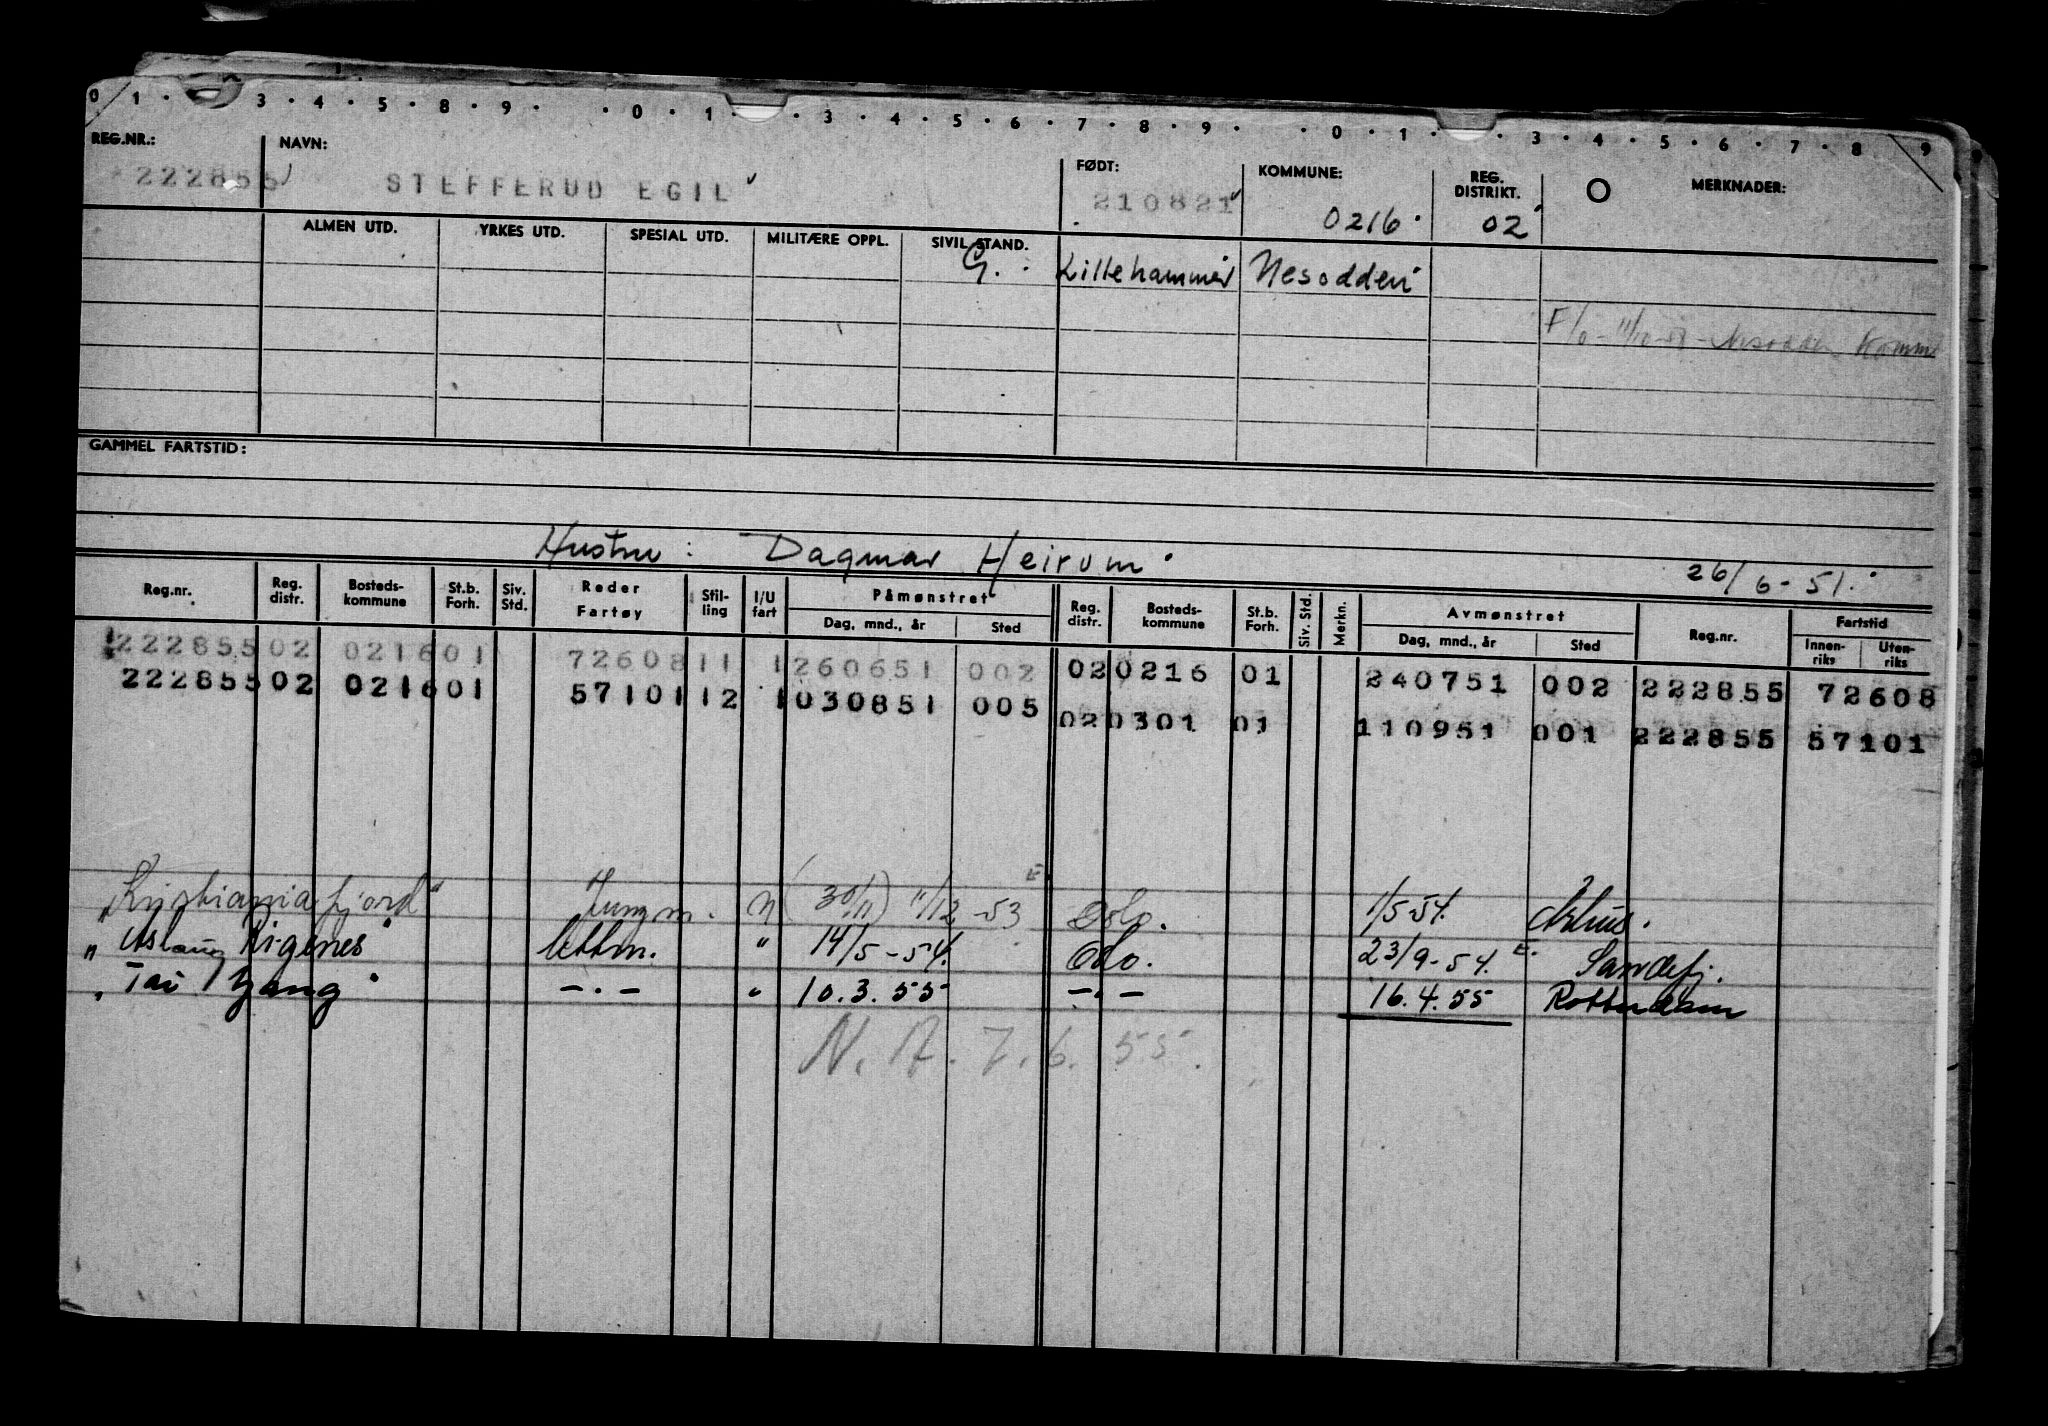 0 1 · 3 · 4 · 5 · 8 · 9 · · 0 · 1 · · 3 · 4 · 5 · 6 · 7 · 8 · 9 · · 0 · 1 · · 3 · 4 · 5 · 6 · 7 · 8 9
REG.NR.: NAVN: FØDT: KOMMUNE: REG. DISTRIKT. O MERKNADER:
222855 STEFFERUD EGIL 210821 0216 02
ALMEN UTD. YRKES UTD. SPESIAL UTD. MILITÆRE OPPL. SIVIL STAND.
G. Lillehammer Nesodden
Nesodden Komm
GAMMEL FARTSTID:
Hustru: Dagmar Heirum 26/6-51.
Reg.nr. Reg. distr. Bosteds-kommune St.b. Forh. Siv. Std. Reder Fartøy Stil-ling I/U fart Påmønstret Reg. distr. Bosteds-kommune St.b. Forh. Siv. Std. Merkn. Avmønstret Reg.nr. Fartstid
Dag, mnd., år Sted Dag, mnd., år Sted Innen-riks Uten-riks
222855 02 0216 01 72608 11 1 260651 002 02 0216 01 240751 002 222855 72608
222855 02 0216 01 57101 12 1 030851 005 02 0301 01 110951 001 222855 57101
"Kristianiafjord" Jungm. (30/11) 11/12 -53 Oslo. 1/5-54. Århus.
" Aslaug Rogenes" lettm. " 14/5-54. Oslo. 23/9-54. Sandefj.
" Tai Yang" -.- " 10.3.55 -.- 16.4.55 Rotterdam
N.A. 7.6.55.